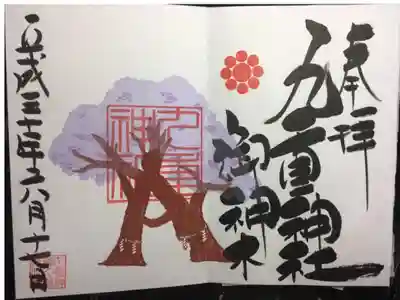 奉拝
九重神社
御神木
九重
神社
平成三十年六月十七日